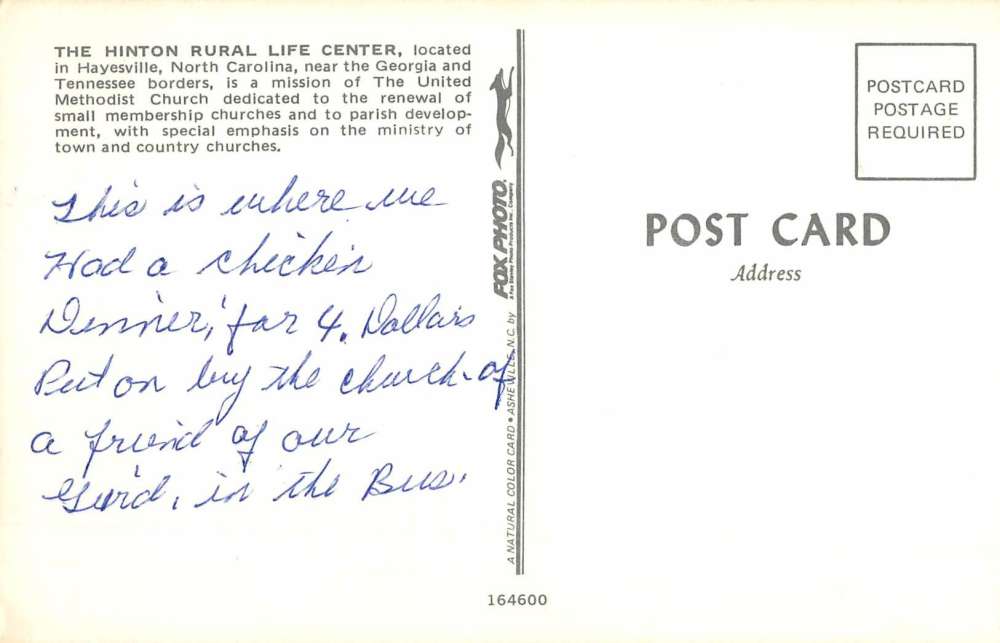 THE HINTON RURAL LIFE CENTER, located
in Hayesville, North Carolina, near the Georgia and
Tennessee borders, is a mission of The United
Methodist Church dedicated to the renewal of
small membership churches and to parish develop-
ment, with special emphasis on the ministry of
town and country churches.
This is where we
Had a chicken
Dinner, for 4. Dollars
Put on by the church of
a friend of our
in the Bus.
A NATURAL COLOR CARD • ASHEVILLE, N.C. by FOX PHOTO.
A Fox Stanley Photo Products Inc. Company
POSTCARD
POSTAGE
REQUIRED
POST CARD
Address
164600